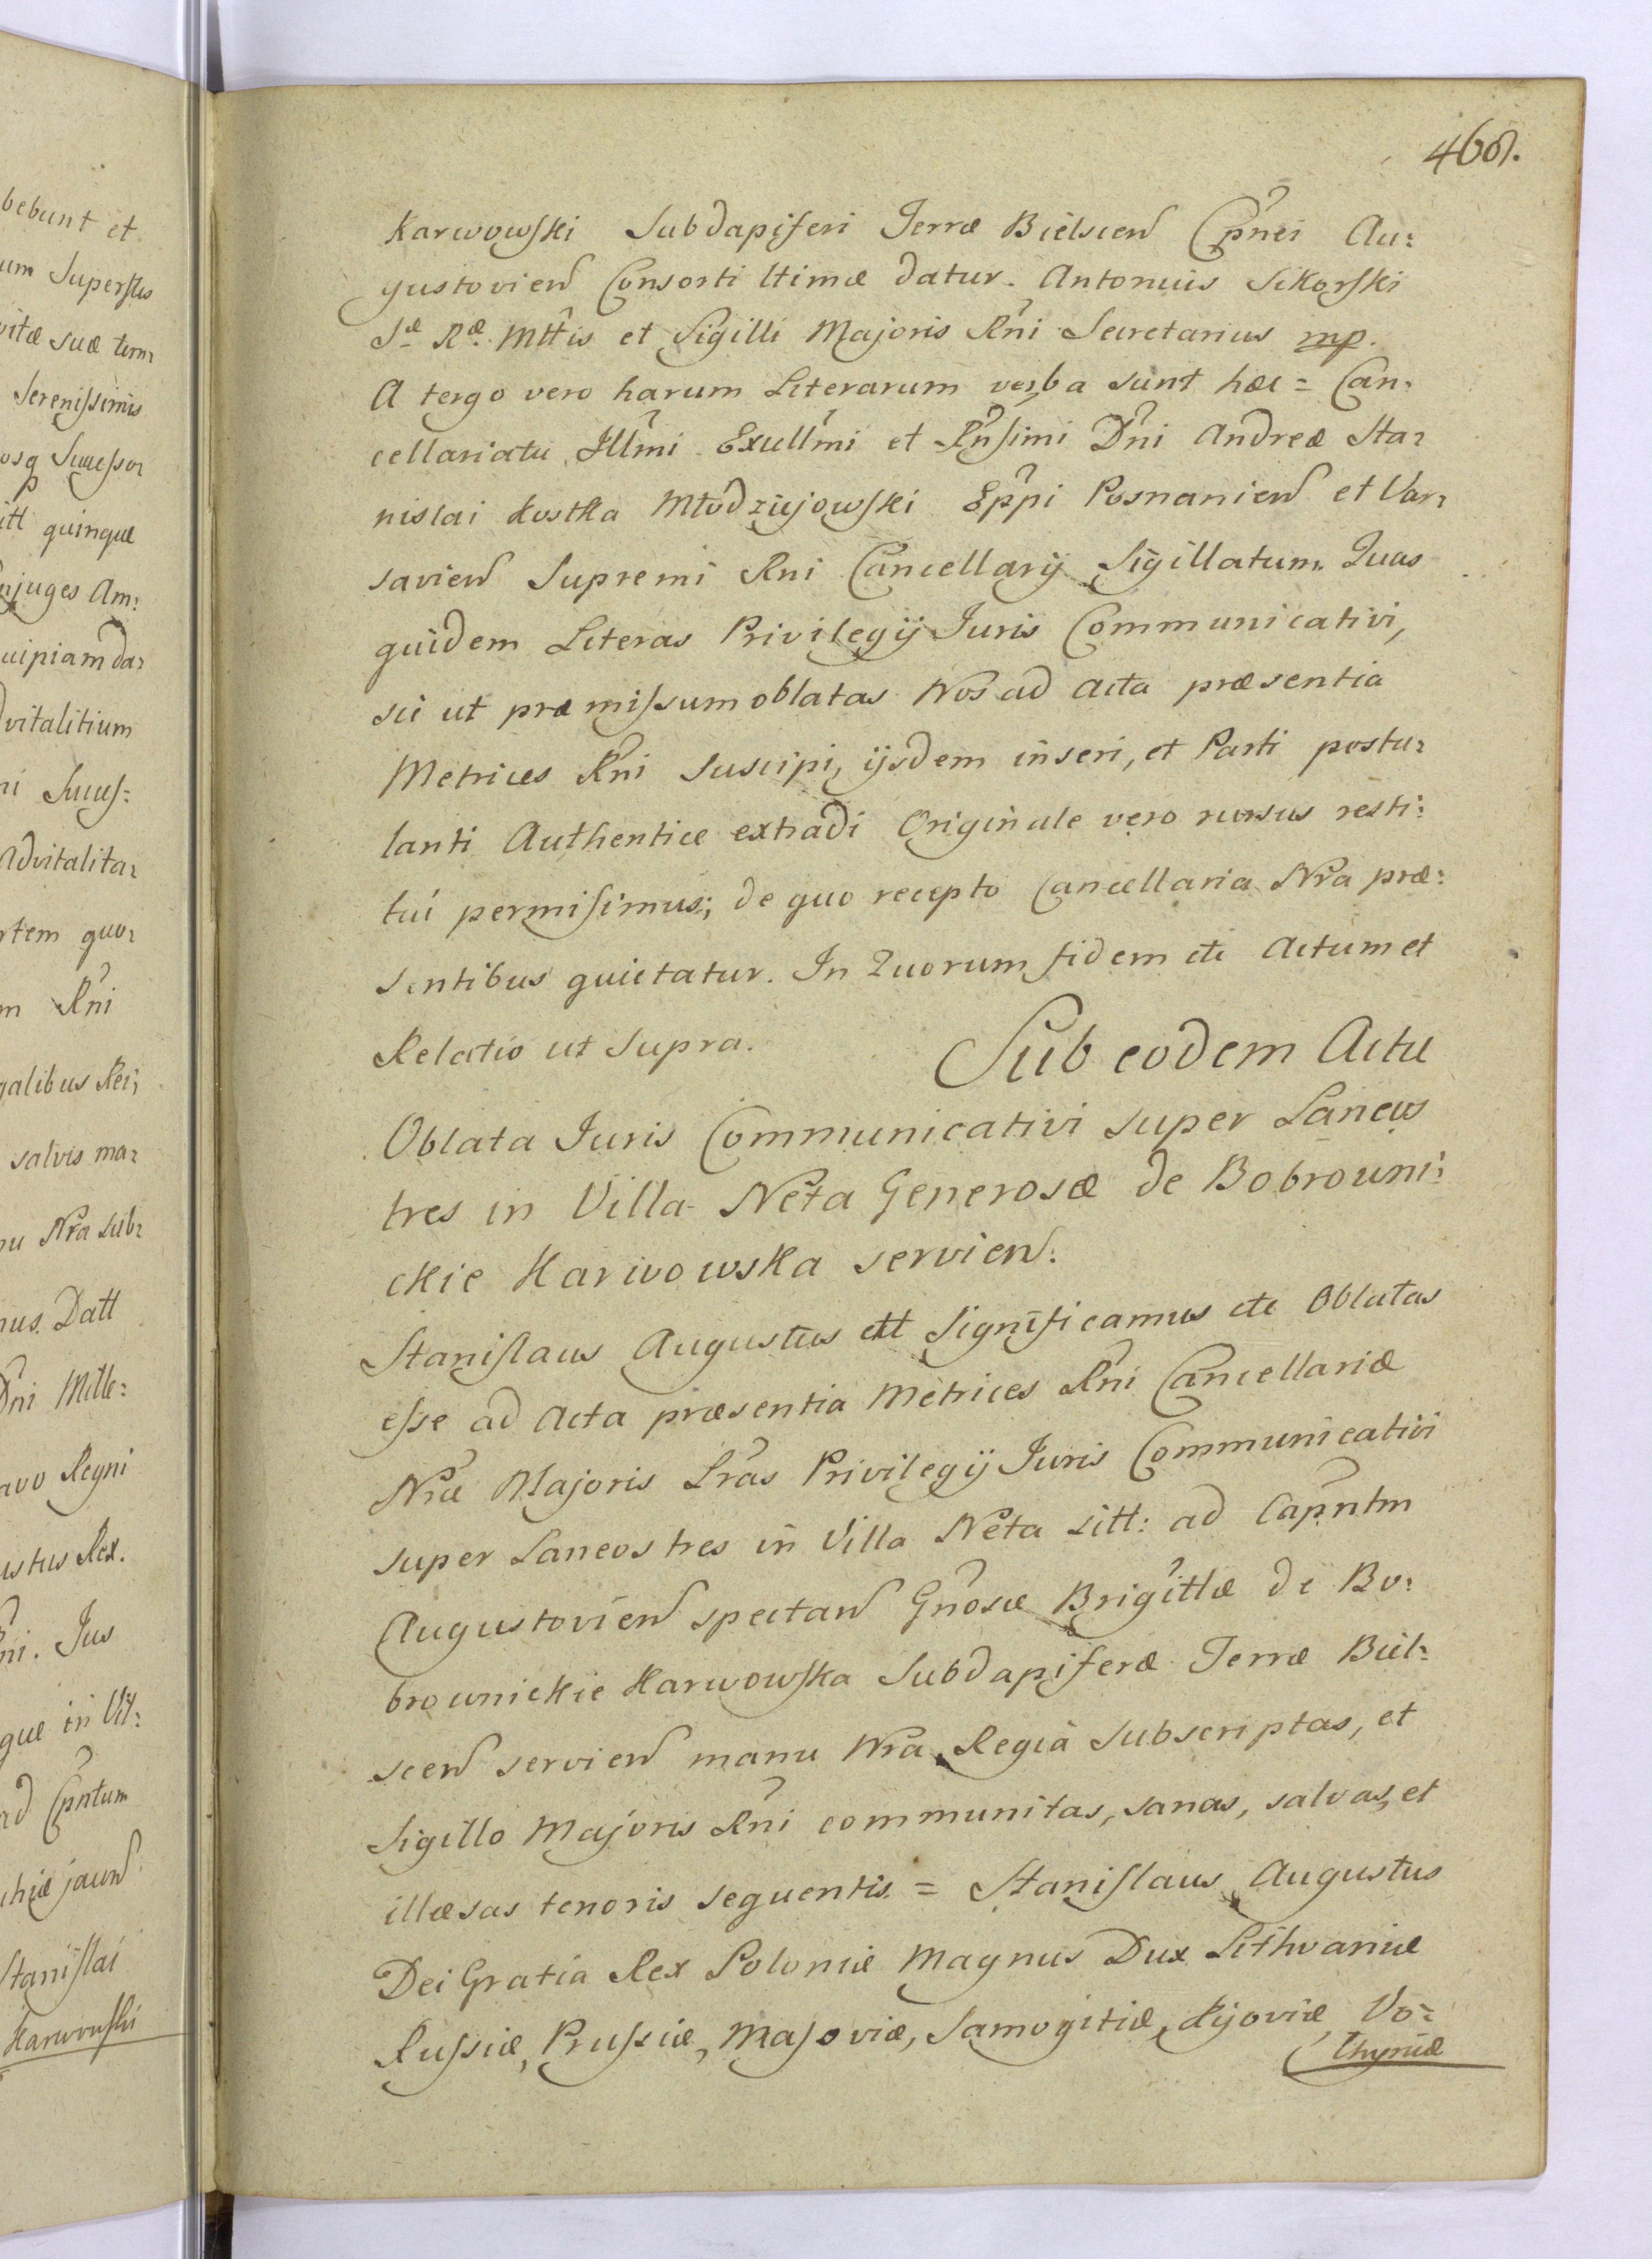 468.
bebunt et
um Superstes
vitæ suæ tem:
Serenissimis
osq Successor
itt quinque
njuges Am:
cuipiam da:
dvitalitium
ni Succes:
Advitalita:
rtem quo:
m Rni
galibus Rei;
salvis ma:
nu Nra sub:
mus. Datt
Dni Mille:
avo Regni
ustus Rex.
ni. Jus
que in Vil:
ad Cpntum
chiæ jaceñ
Stanislai
Karwowski
Karwowski Subdapiferi Terræ Bielscen̄ Cpnei Au:
gustovien̄ Consorti ltimæ datur. Antonius Sikorski
Sæ Ræ Mttis et Sigilli Majoris Rni Secretarius mp.
A tergo vero harum Literarum verba sunt hæc = Can:
cellariatu Illmi Excellmi et Rnsimi Dni Andreæ Sta:
nislai Kostka Młodziejowski Eppi Posnanien̄ et Var:
savien̄ Supremi Rni Cancellarij Sigillatum. Quas
quidem Literas Privilegij Juris Communicativi,
sic ut præmissum oblatas Nos ad acta præsentia
Metrices Rni Suscipi, ijsdem inseri, et Parti postu:
lanti Authentice extradi Originale vero rursus resti:
tui permisimus; de quo recepto Cancellaria Nra præ:
sentibus quietatur. In Quorum fidem etc Actum et
Relatio ut Supra.
Sub eodem Actu
Oblata Juris Communicativi super Laneos
tres in Villa Neta Generosæ de Bobrowni:
ckie Karwowska servien̄:
Stanislaus Augustus ett Significamus etc Oblatas
esse ad Acta præsentia Metrices Rni Cancellariæ
Nræ Majoris Lras Privilegij Juris Communicativi
super Laneos tres in Villa Neta sitt: ad Capntm
Augustovien̄ spectan̄ Gnosæ Brigittæ de Bo:
brownickie Karwowska Subdapiferæ Terræ Biel:
scen̄ servien̄ manu Nra Regia Subscriptas, et
Sigillo Majoris Rni communitas, sanas, salvas, et
illæsas tenoris sequentis. = Stanislaus Augustus
Dei Gratia Rex Poloniæ Magnus Dux Lithvaniæ
Russiæ, Prussiæ, Masoviæ, Samogitiæ, Kijoviæ, Vo:
lhyniæ